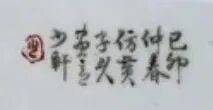 己卯
仲春
仿黄
子久
畫意
少軒